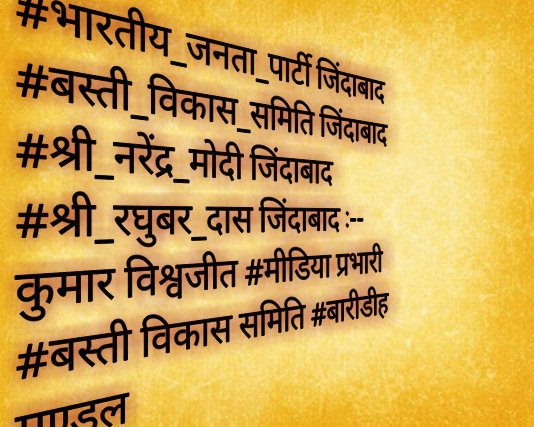 #भारतीय_जनता_पार्टी जिंदाबाद
#बस्ती_विकास_समिति जिंदाबाद
#श्री_नरेंद्र_मोदी जिंदाबाद
#श्री_रघुबर_दास जिंदाबाद :--
कुमार विश्वजीत #मीडिया प्रभारी
#बस्ती विकास समिति #बारीडीह
मण्डल